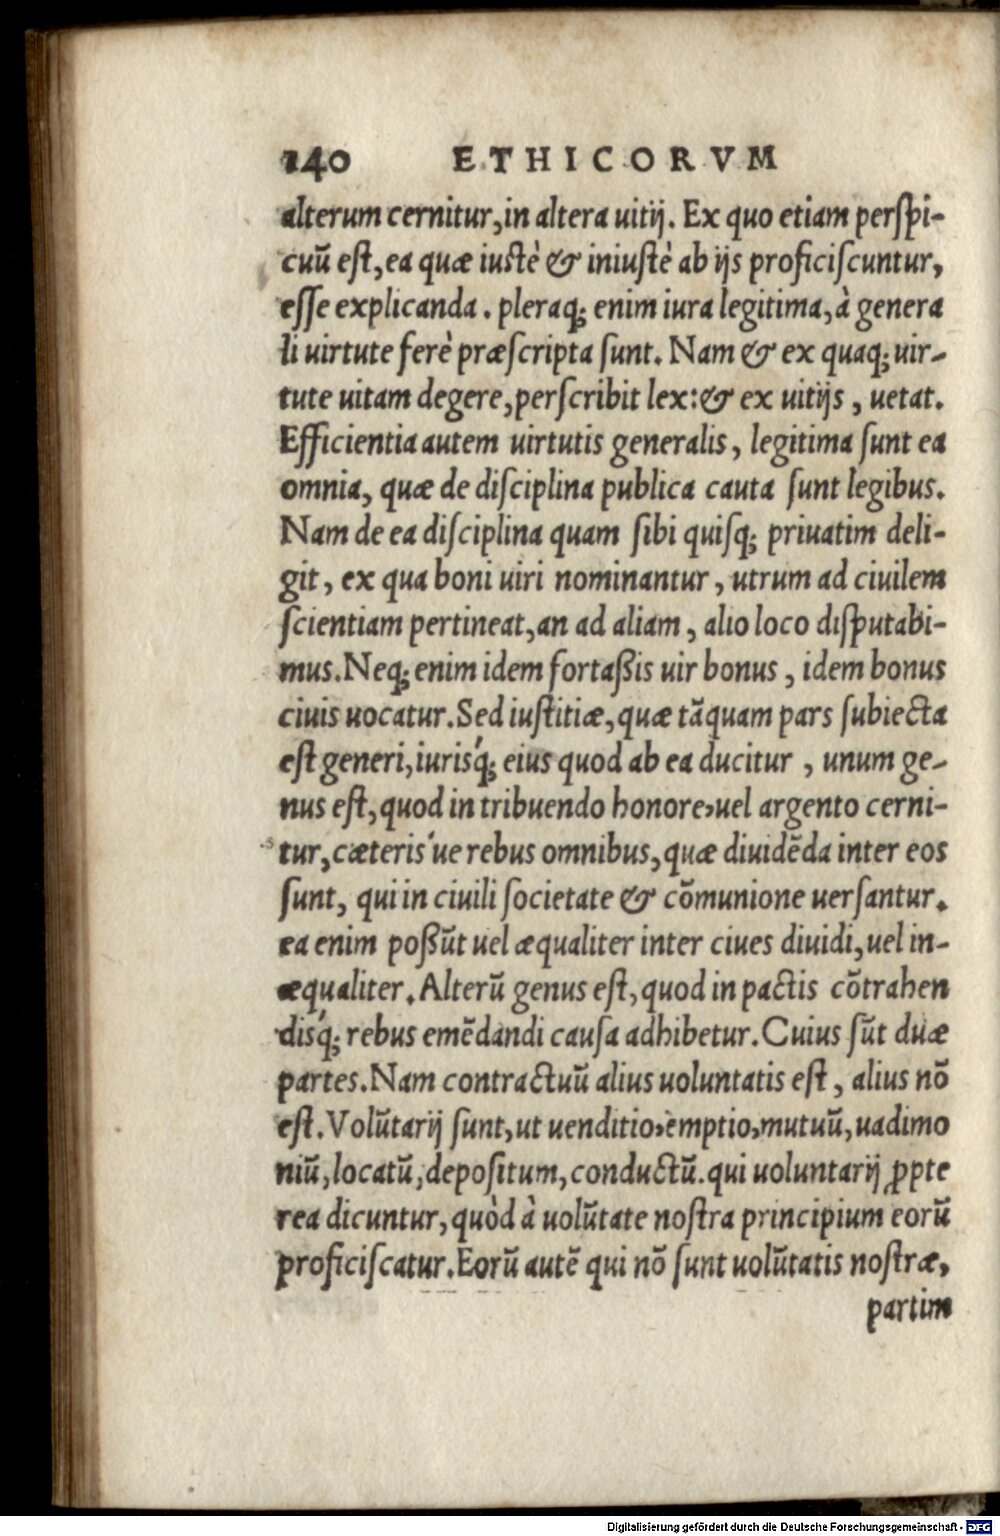 140 ETHICORVM
alterum cernitur, in altera uitij. Ex quo etiam perſpi-
cuū eſt, ea quæ iuſtè & iniuſtè ab ijs proficiſcuntur,
eſſe explicanda. pleraq; enim iura legitima, à genera
li uirtute ferè præſcripta ſunt. Nam & ex quaq; uir-
tute uitam degere, perſcribit lex: & ex uitijs, uetat.
Efficientia autem uirtutis generalis, legitima ſunt ea
omnia, quæ de diſciplina publica cauta ſunt legibus.
Nam de ea diſciplina quam ſibi quiſq; priuatim deli-
git, ex qua boni uiri nominantur, utrum ad ciuilem
ſcientiam pertineat, an ad aliam, alio loco diſputabi-
mus. Neq; enim idem fortaßis uir bonus, idem bonus
ciuis uocatur. Sed iuſtitiæ, quæ tāquam pars ſubiecta
eſt generi, iurisq́; eius quod ab ea ducitur, unum ge-
nus eſt, quod in tribuendo honore, uel argento cerni-
tur, cæteris úe rebus omnibus, quæ diuidēda inter eos
ſunt, qui in ciuili ſocietate & cōmunione uerſantur.
ea enim poßūt uel æqualiter inter ciues diuidi, uel in-
æqualiter. Alterū genus eſt, quod in pactis cōtrahen
disq́; rebus emēdandi cauſa adhibetur. Cuius ſūt duæ
partes. Nam contractuū alius uoluntatis eſt, alius nō
eſt. Volūtarij ſunt, ut uenditio, emptio, mutuū, uadimo
niū, locatū, depoſitum, conductū. qui uoluntarij ꝓpte
rea dicuntur, quòd à uolūtate noſtra principium eorū
proficiſcatur. Eorū autē qui nō ſunt uolūtatis noſtræ,
partim
Digitalisierung gefördert durch die Deutsche Forschungsgemeinschaft - DFG